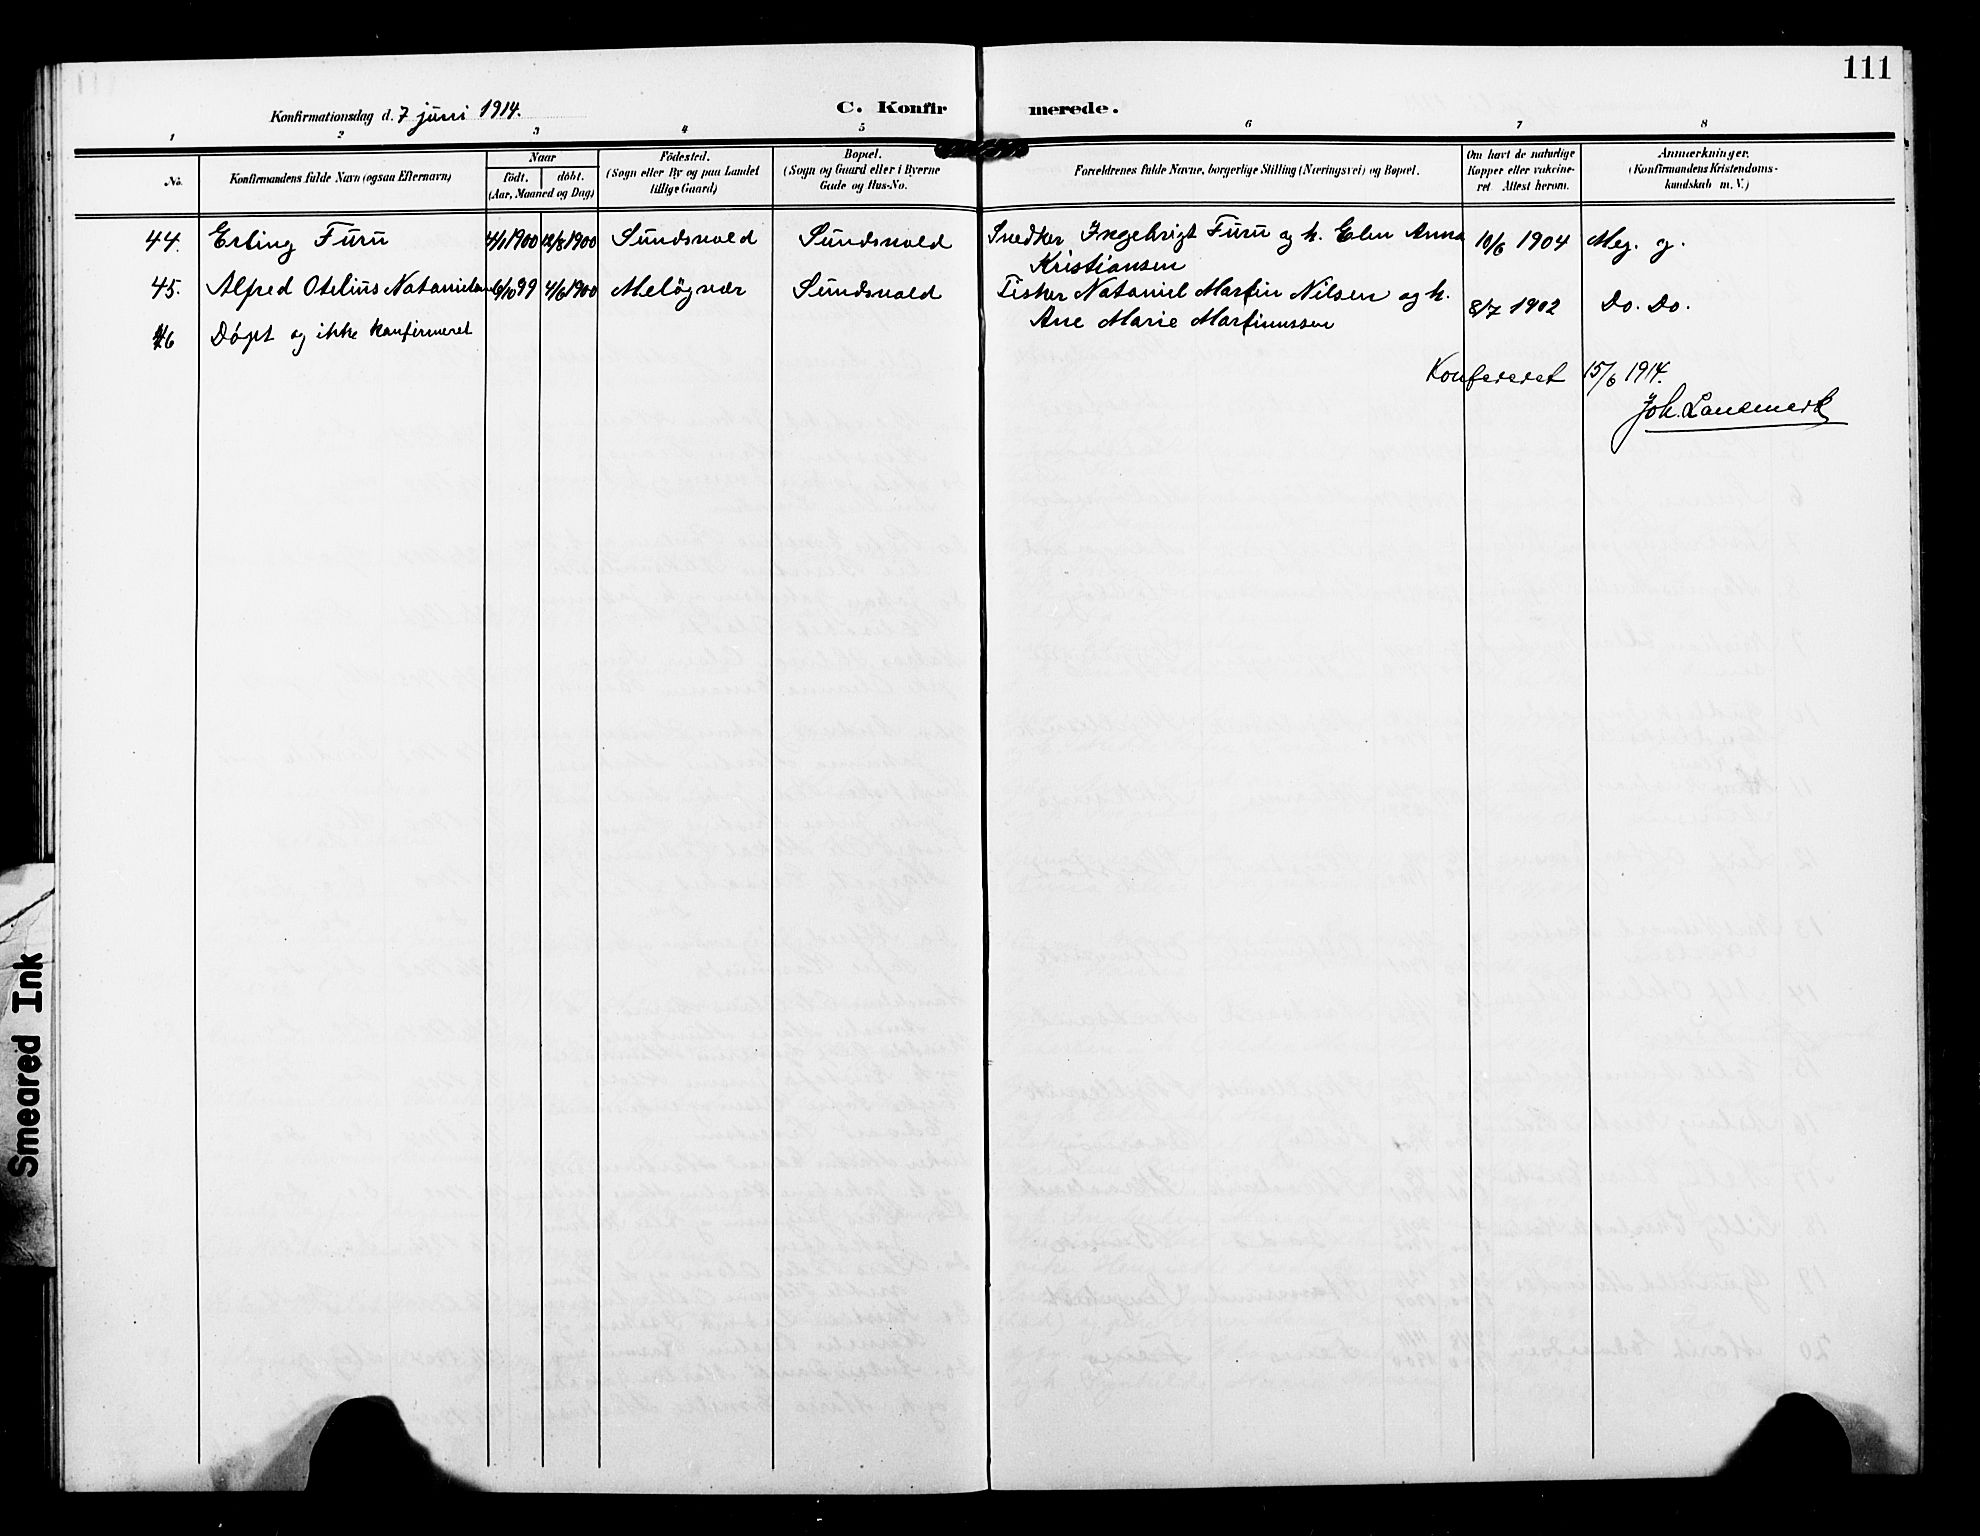 111
Konfirmationsdag d. 7 juni 1914.
C. Konfirmerede.
1 2 3 4 5 6 7 8
No.
Konfirmandens fulde Navn (ogsaa Efternavn)
Naar
født. døbt.
(Aar, Maaned og Dag)
Fødested.
(Sogn eller By og paa Landet
tillige Gaard)
Bopæl.
(Sogn og Gaard eller i Byerne
Gade og Hus-No.
Forældrenes fulde Navne, borgerlige Stilling (Næringsvei) og Bopæl.
Om havt de naturlige
Kopper eller vakcine-
ret Attest herom.
Anmærkninger.
(Konfirmandens Kristendoms-
kundskab m. V.)
44. Erling Furu 4/1 1900 12/8 1900 Sundsvold Sundsvold Snedker Ingebrigt Furu og h. Elen Anna 10/6 1904 Meg. g.
Kristiansen
45. Alfred Otelius Natanielsen 6/10 99 4/6 1900 Meløgvær Sundsvold Fisker Nataniel Martin Nilsen og h. 8/7 1902 Do. Do.
Ane Marie Martinussen
46 Døpt og ikke konfirmeret
Konfereret 15/6 1914.
Joh. Landmerk
Smeared Ink